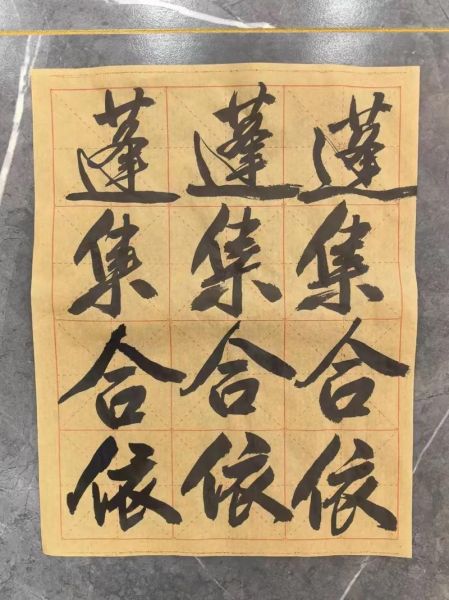 蓬集合依
蓬集合依
蓬集合依